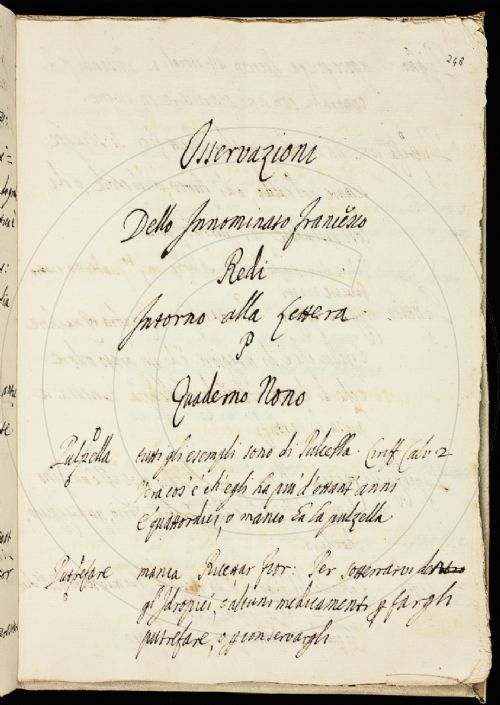 248
Osservazioni
Dello Innominato Francesco
Redi
Intorno alla Lettera
P
Quaderno Nono
Pulzella tutti gli esempli sono di Pulcella. Ciriff. Calv. 2
Pera cos' è ch'egli ha più d'ottant' anni
E quattordici, o manco ha la pulzella
Putrefare manca Ricettar fior: Per sotterrarvi dentro
gl'Idropici, o alcuni medicamenti p fargli
putrefare, o p conservargli